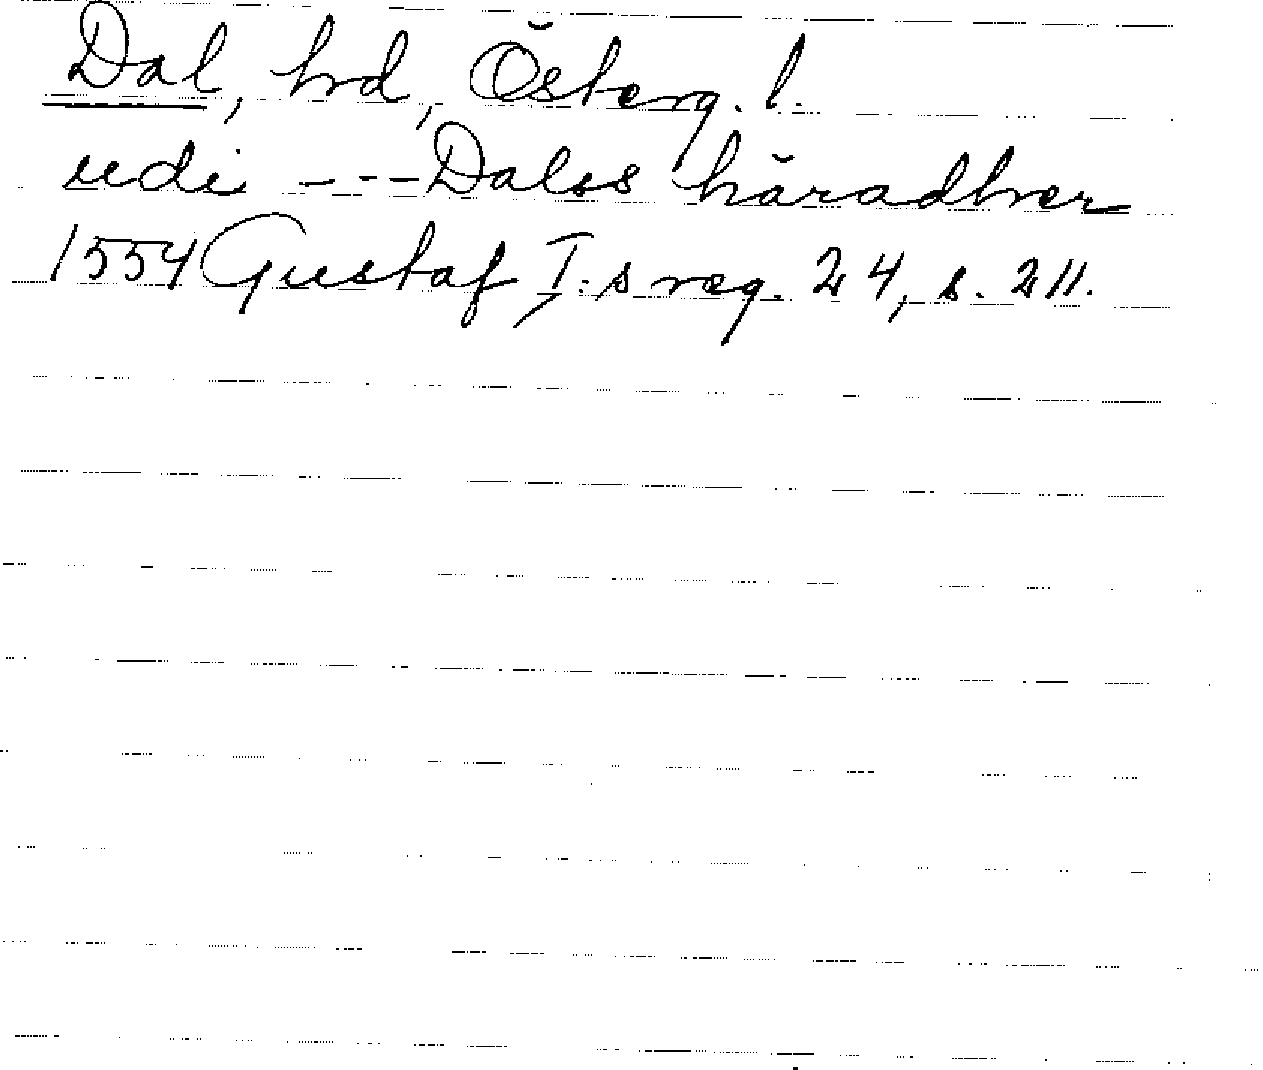 Dal, hrd, Österg. l.
udi --- Dalss häradher
1554 Gustaf I:s reg. 24, s. 211.